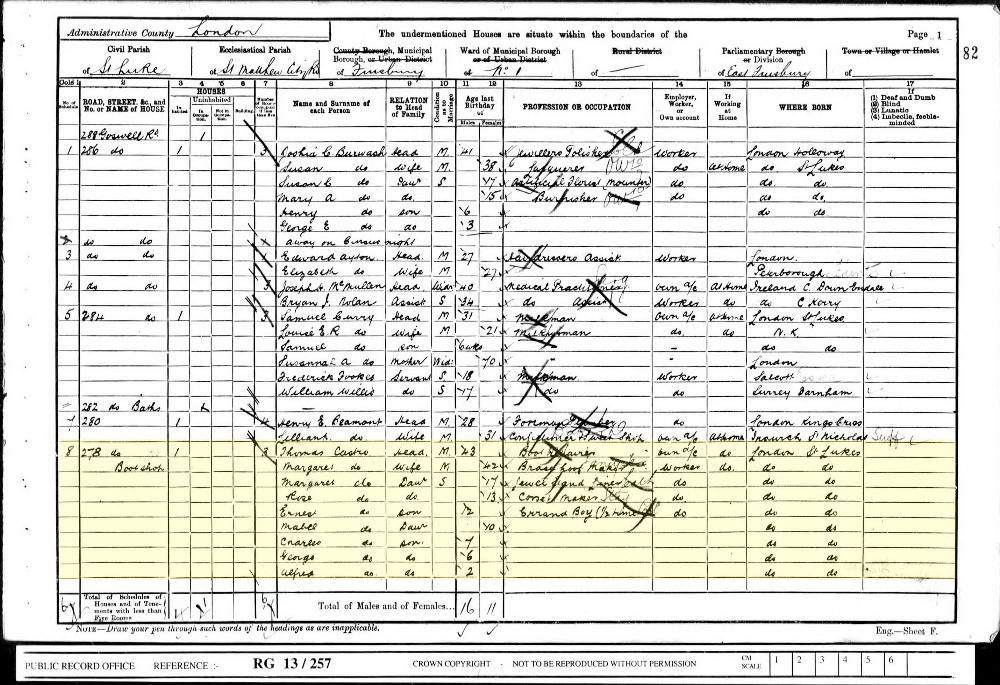 Administrative County London The undermentioned Houses are situate within the boundaries of the Page 1
82
Civil Parish Ecclesiastical Parish County Borough, Municipal Borough, or Urban District Ward of Municipal Borough or of Urban District Rural District Parliamentary Borough or Division Town or Village or Hamlet
of St Luke of St Matthew City Rd of Finsbury of No 1 of — of East Finsbury of
Cols 1 2 3 4 5 6 7 8 9 10 11 12 13 14 15 16 17
No. of Schedule ROAD, STREET, &c., and No. or NAME of HOUSE HOUSES In- habited Uninhabited In Occupation Not in Occupation Building Name and Surname of each Person RELATION to Head of Family Condition as to Marriage Age last Birthday of Males Females PROFESSION OR OCCUPATION Employer, Worker, or Own account If Working at Home WHERE BORN If (1) Deaf and Dumb (2) Blind (3) Lunatic (4) Imbecile, feeble-minded
288 Goswell Rd 1
1 286 do 1 3 Burwash Head M 41 Jewellers Polisher Worker London Holloway
Susan do Wife M 38 do At Home do St Lukes
Susan C do Daur S 17 (mounter) do do do
Mary A do do 15 Burnisher do do do
Henry do son 6 do do
George E do do 3
2 do do away on Census night
3 do do Edward Head M 27 Hairdressers Assist Worker London
Elizabeth do Wife M 27 Peterborough
4 do do 3 Joseph H. McMullen Head Widr 40 Medical Practitioner own a/c At Home Ireland C. Down
Bryan J. Nolan Assist S 34 do Assist Worker do do C Kerry
5 284 do 1 3 Samuel Curry Head M 31 Milkman own a/c at home London St Lukes
Louise E. R. do Wife M 21 do do N.K.
Samuel do son 6 wks — do do
Susannah A do Mother Wid 70 - - London
Frederick Servant S 18 Milkman Worker
William Willis do S 17 do do Surrey
282 do Baths
7 280 1 4 Henry E. Beamont Head M 28 Foreman do London Kings Cross
Lillian do Wife M 31 Confectioner Sweet Shop own a/c At Home St Nicholas Suff
8 278 do 1 3 Thomas Castro Head M 43 Boot Repairer own a/c do London St Lukes
Boot shop Margaret do Wife M 42 Maker Worker do do do
Margaret do Daur S 17 do do do
Rose do do 13 Corset Maker do do do
Ernest do son 12 Errand Boy do do do
Mabel do Daur 10 do do
Charles do son 7 do do
George do do 6 do do
Alfred do do 2 do do
Total of Schedules of Houses and of Tenements with less than Five Rooms Total of Males and of Females... 16 11
NOTE—Draw your pen through such words of the headings as are inapplicable. Eng.—Sheet F.
PUBLIC RECORD OFFICE REFERENCE :- RG 13/257 CROWN COPYRIGHT - NOT TO BE REPRODUCED WITHOUT PERMISSION CM SCALE 1 2 3 4 5 6